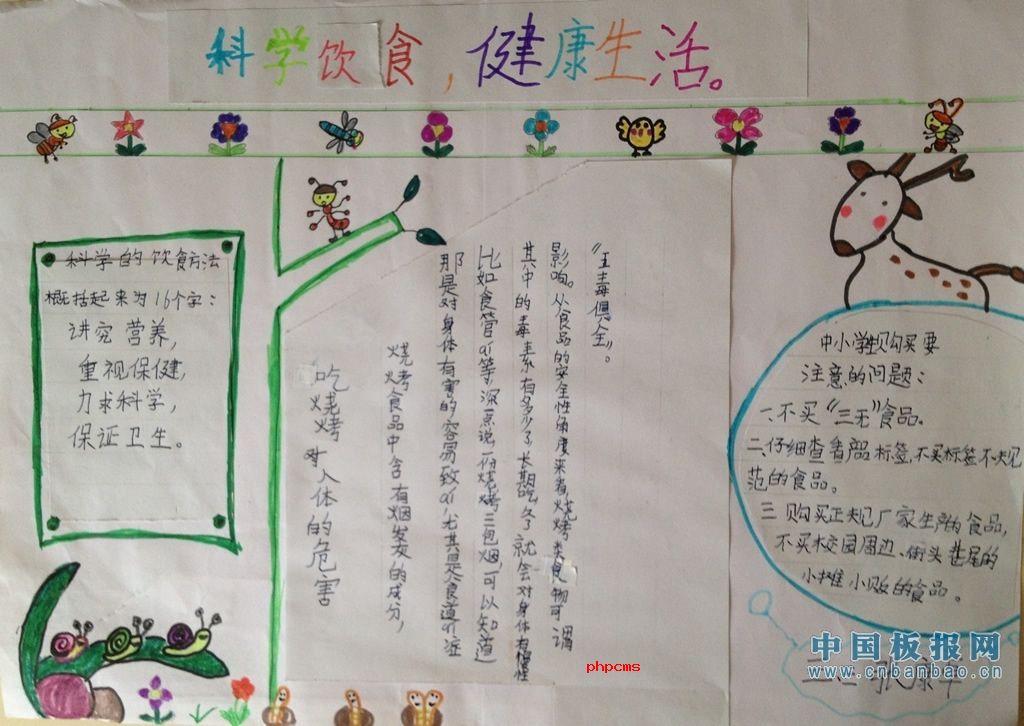 科学饮食，健康生活。
科学的饮食方法
概括起来为16个字：
讲究营养，
重视保健，
力求科学，
保证卫生。
吃烧烤对人体的危害
烧烤食品中含有烟发女的成分，
那是对身体有害的容易致
比如食管ai等，深点说一份烧烤三包烟，可以知道
其中的毒素有多少了，长期吃多了就会对身体有慢性
影响。从食品的安全性角度来看，烧烤类食物可谓
“五毒俱全”。
中小学生购买要
注意的问题：
一、不买“三无”食品。
二、仔细查看产品标签，不买标签不规
范的食品。
三、购买正规厂家生产的食品，
不买校园周边、街头巷尾的
小摊小贩的食品。
phpcms
中国板报网
www.cnbanbao.cn